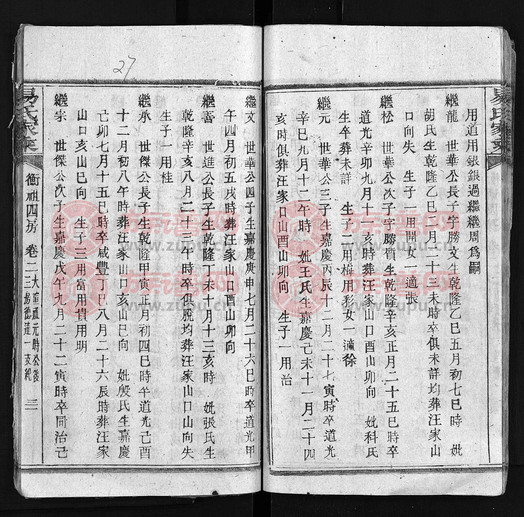 27
用道用銀銀過繼繼周爲嗣
繼龍 世華公長子字勝文生乾隆乙巳五月初七巳時 妣
胡氏生乾隆乙巳二月二十三未時卒俱未詳均葬汪家山
口向失 生子一用開女一適張
繼松 世華公次子字勝 生乾隆辛亥正月二十五巳時卒
道光辛卯九月十二亥時葬汪家山口酉山卯向 妣科氏
生卒葬未詳 生子一用梅用彩女一適徐
繼元 世華公三子生嘉慶丙辰十二月二十七寅時卒道光
辛巳九月十一午時 妣王氏生嘉慶己未十一月二十四
亥時俱葬汪家口山酉山卯向 生子一用治
繼文 世華公四子生嘉慶庚申七月二十六巳時卒道光甲
午四月初五戌時葬汪家山口酉山卯向
繼善 世進公長子生乾隆丁未十月十三亥時 妣張氏生
乾隆辛亥八月二十三午時卒俱 均葬汪家山口山向失
生子一用桂
繼承 世傑公長子生乾隆甲寅正月初四巳時卒道光己酉
十二月初八午時葬汪家山口亥山巳向 妣殷氏生嘉慶
己卯七月十五巳時卒咸豐丁巳八月二十六辰時葬汪家
山口亥山巳向 生子三用富用貴用明
繼宗 世傑公次子生嘉慶戊午九月二十二寅時卒同治己
易氏家乘
衡祖四房 卷二
三